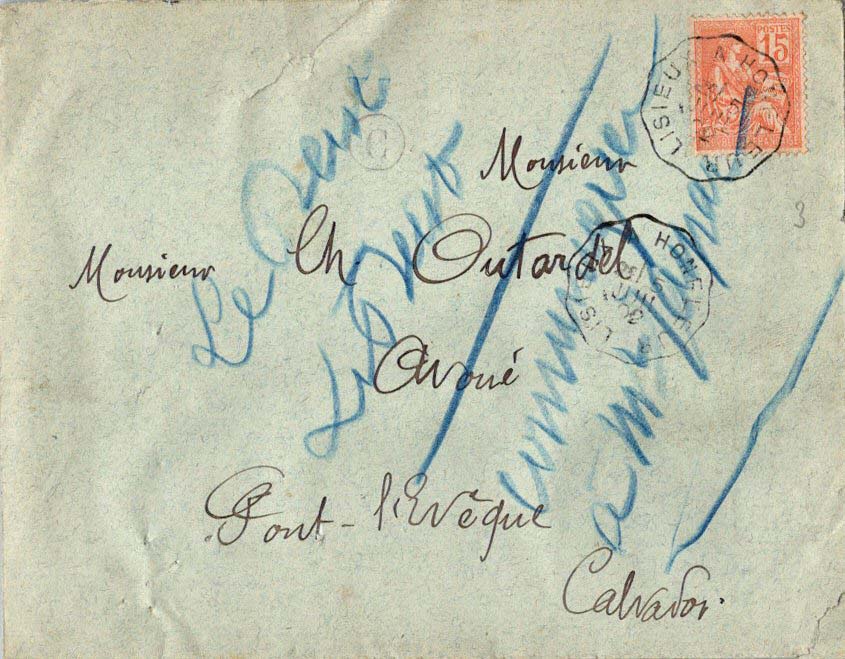 POSTES
15
LISIEUX A HONFLEUR
C
Monsieur
3
Monsieur Ch. Outardel
LISIEUX A HONFLEUR
JUIN
02
Avoué
Pont-l'Evêque
Calvados.
Le
communiquer
à M.